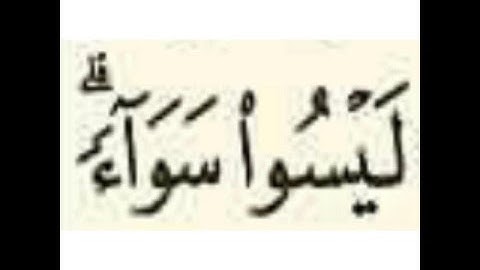 لَيْسُواْ سَوَآءًۗ